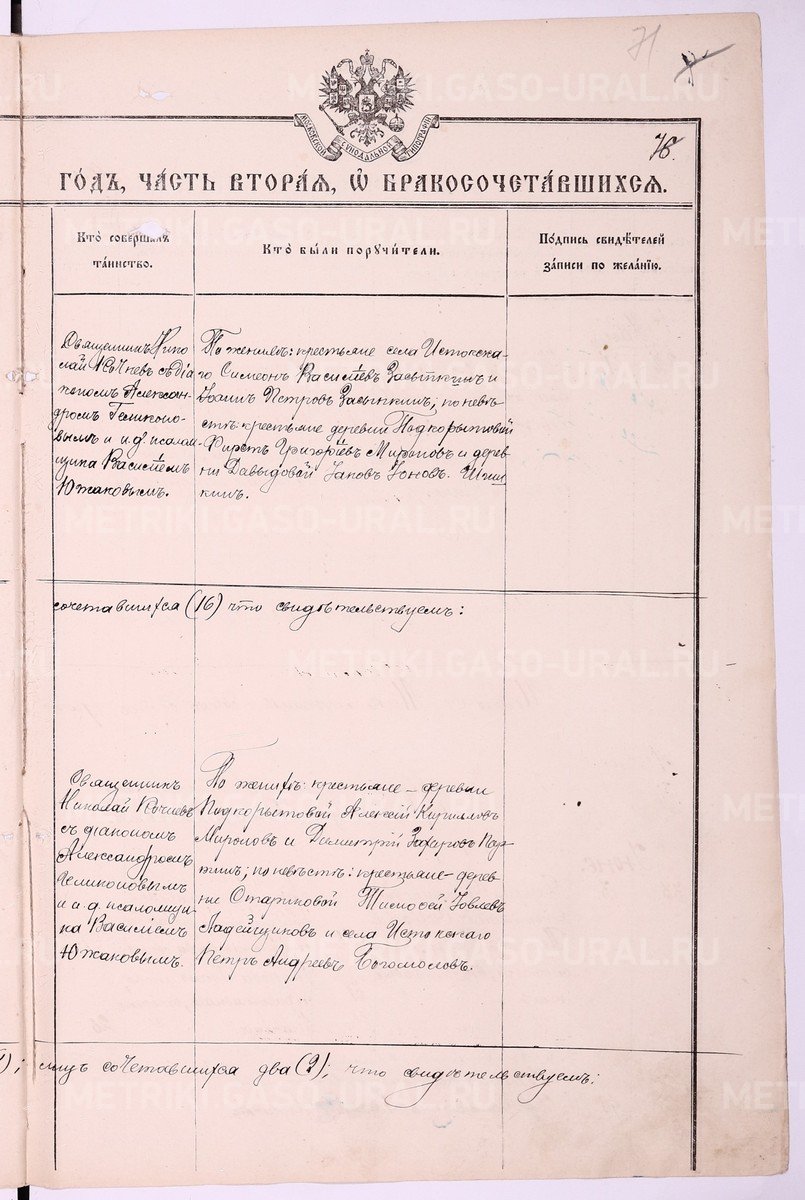 71
78.
МОСКОВСКОЙ СѴНОДАЛЬНОЙ ТИПОГРАФІИ
ГО́ДЪ, ЧА́СТЬ ВТОРА́Я, Ѽ БРАКОСОЧЕТА́ВШИХСЯ.
Кто̀ соверша́лъ
та́инство.
Кто̀ бы́ли поручи́тели.
По́дпись свидѣ́телей
за́писи по жела́нїю.
Священникъ Нико-
лай Кочневъ съ діа-
кономъ Алексан-
дромъ Геликоно-
вымъ и и. д. псалом-
щика Василіемъ
Южаковымъ.
По женихѣ: крестьяне села Истокска-
го Симеонъ Василіевъ Засыпкинъ и
Іоаннъ Петровъ Засыпкинъ; по невѣ-
стѣ крестьяне деревни Подкорытовой
Григоріевъ Мироновъ и дерев-
ни Давыдовой Іаковъ Іоновъ
сочетавшихся (16) что свидѣтельствуемъ:
Священникъ
Николай Кочневъ
съ діакономъ
Александромъ
Геликоновымъ
и и. д. псаломщи-
ка Василіемъ
Южаковымъ.
По женихѣ: крестьяне – деревни
Подкорытовой Алексій Кирилловъ
Мироновъ и Димитрій Захаровъ
по невѣстѣ: крестьяне – дерев-
ни Тимоѳей Іовлевъ
Ладейщиковъ и села Истокскаго
Петръ Андреевъ Богомоловъ.
сочетавшихся два (2); что свидѣтельствуемъ:
METRIKI.GASO-URAL.RU